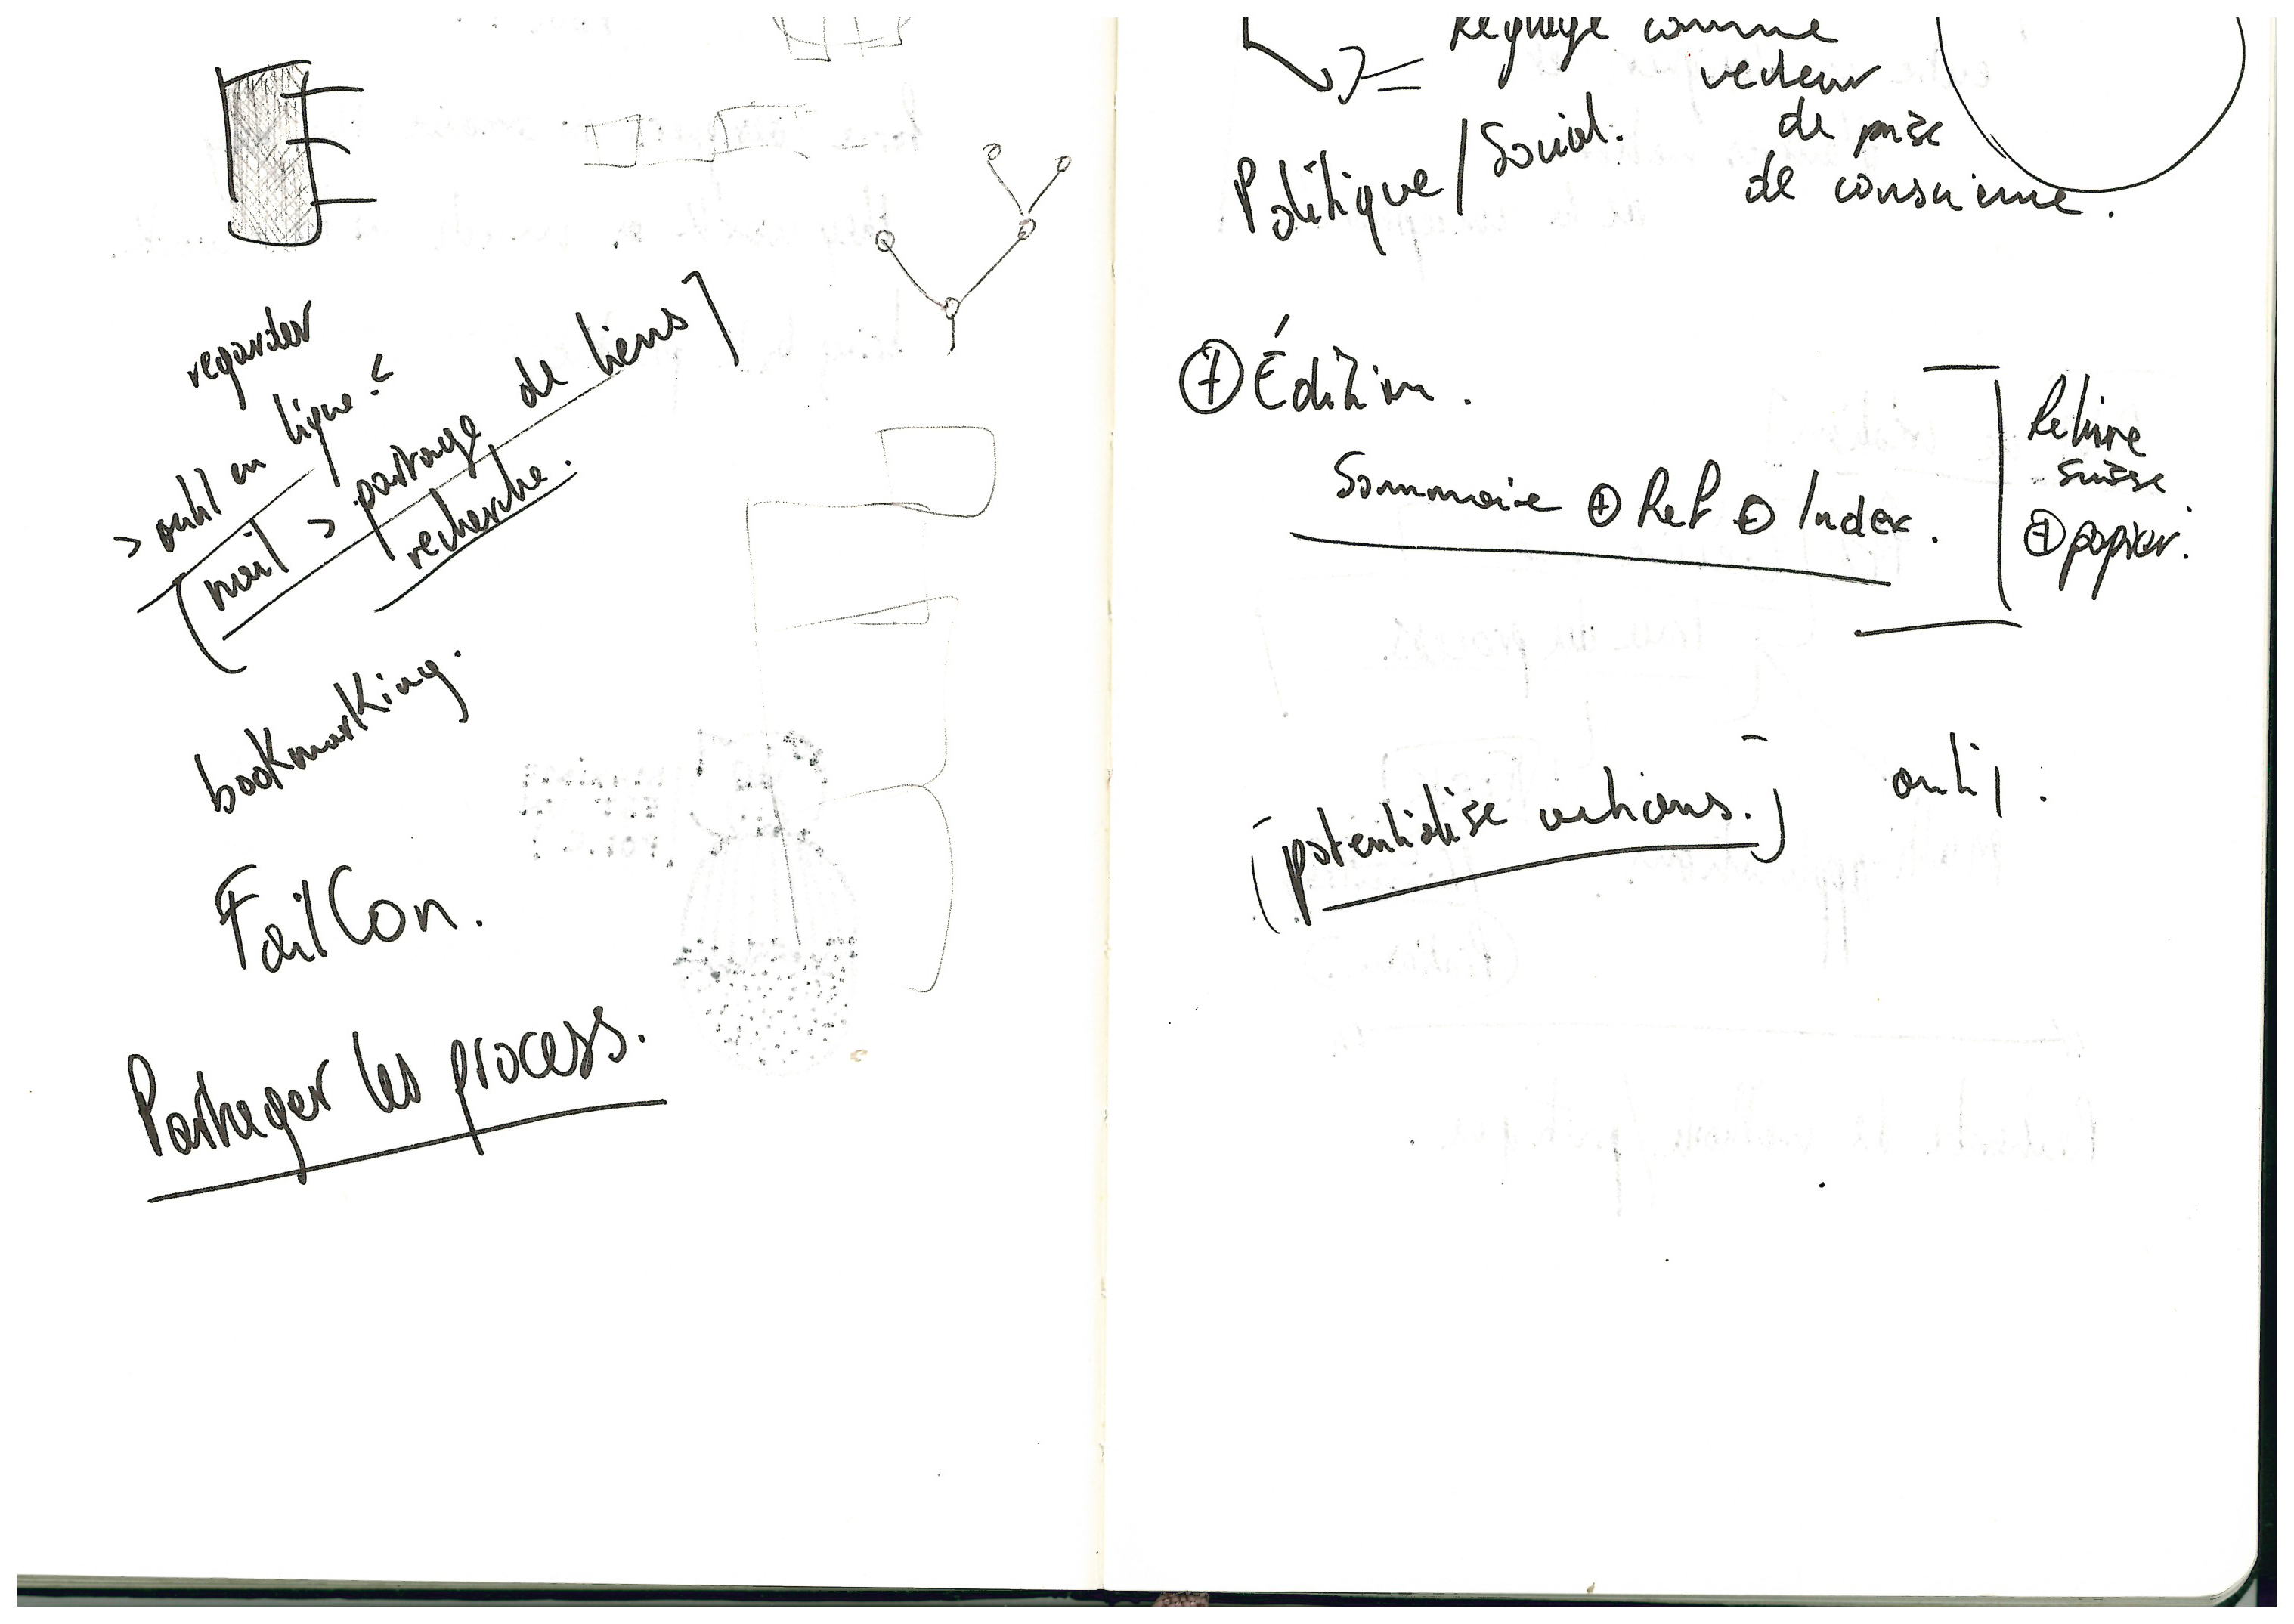 regarder
> outil en ligne <
[mail > partage de liens]
recherche.
bookmarking.
FailCon.
Partager les process.
comme
vecteur
de prise
de conscience.
Politique / Social.
⊕ Édition.
Sommaire ⊕ Ref ⊕ Index.
Reliure
suisse
⊕ papier.
[potentialise actions.]
outil.